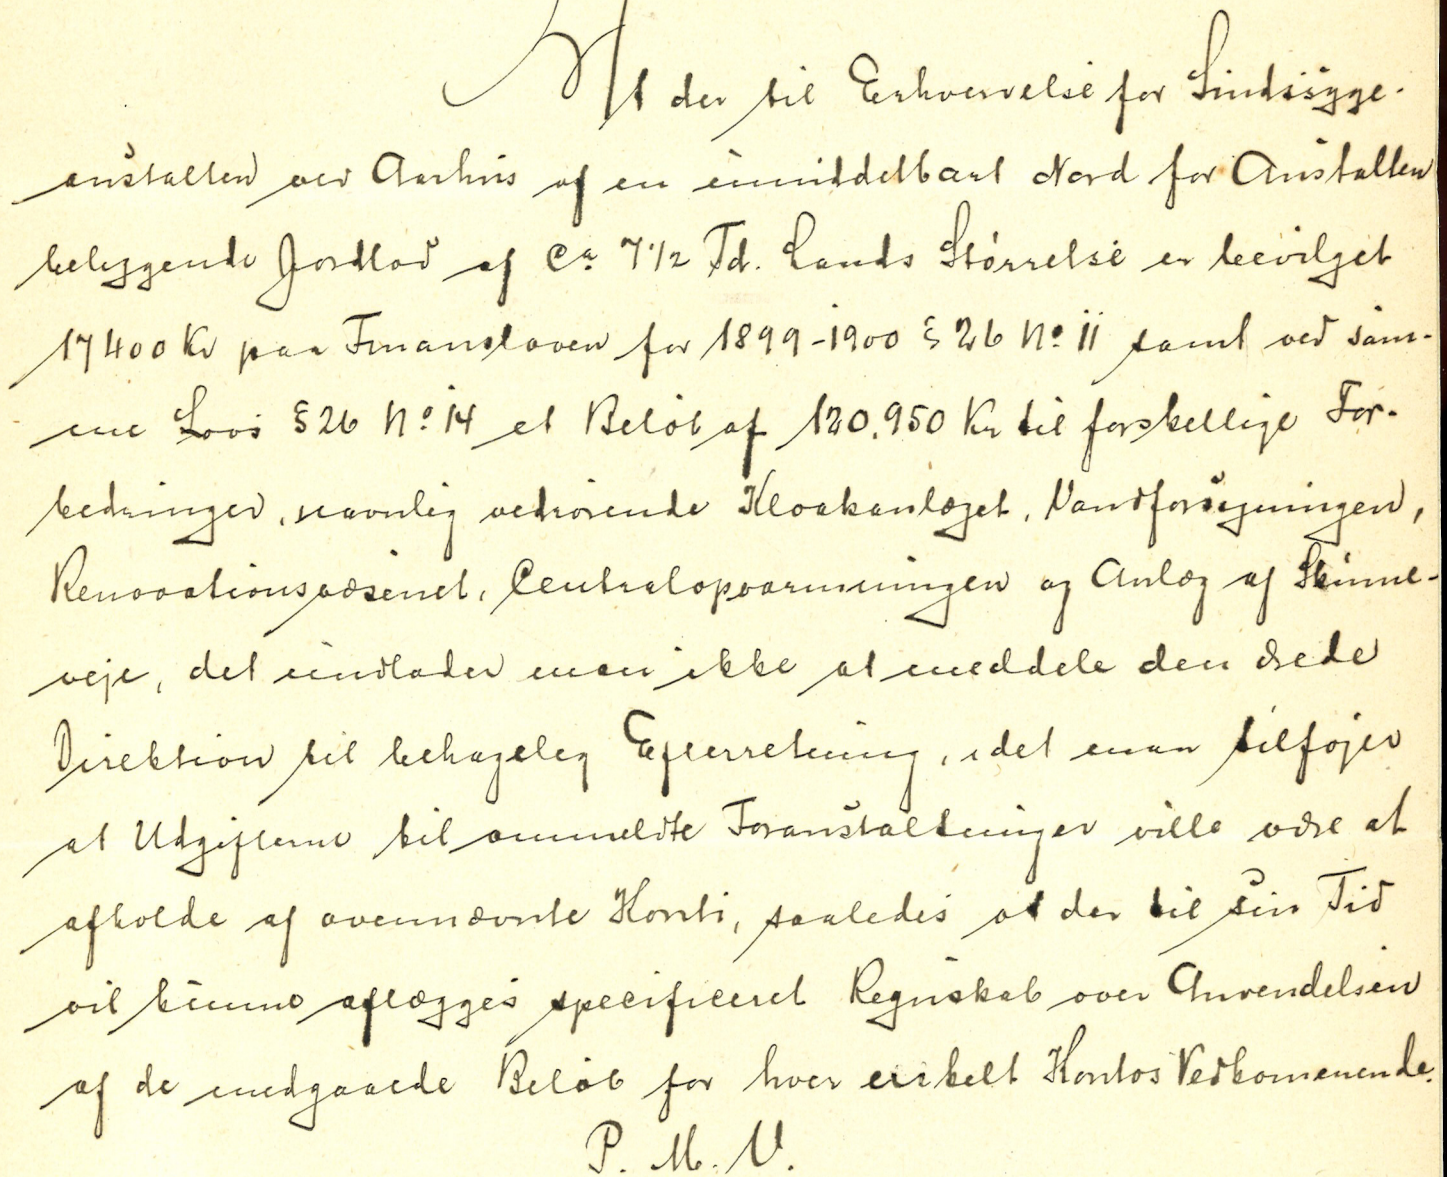 At der til Erhvervelse for Sindssyge-
anstalten ved Aarhus af en umiddelbart Nord for Anstalten
beliggende Jordlod af Ca 7 1/2 Td. Lands Størrelse er bevilget
17400 Kr paa Finansloven for 1899-1900 § 26 No 11 samt ved sam-
me Lovs § 26 No 14 et Beløb af 120.950 Kr til forskellige For-
bedringer, navnlig vedrørende Kloakanlæget, Vandforsyningen,
Renovationsvæsenet, Centralopvarmningen og Anlæg af Skinne-
veje, det undlader man ikke at meddele den ærede
Direktion til behagelig Efterretning, idet man tilføjer
at Udgifterne til ommeldte Foranstaltninger ville være at
afholde af ovennævnte Konti, saaledes at der til sin Tid
vil kunne aflægges specificeret Regnskab over Anvendelsen
af de medgaaede Beløb for hver enkelt Kontos Vedkommende.
P. M. V.